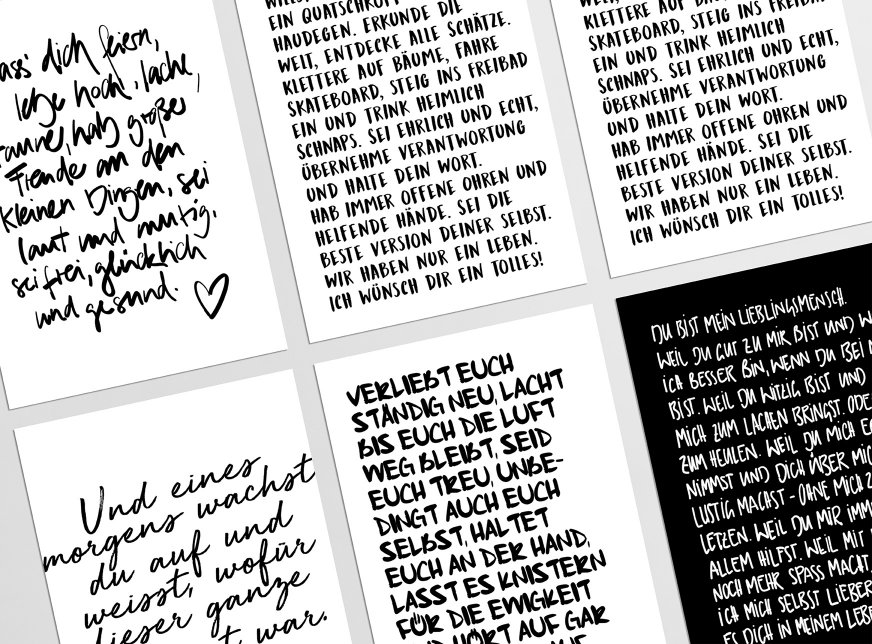 dich feiern,
lebe hoch, lache,
hab großer
Freude an den
kleinen Dingen, sei
laut und mutig,
sei frei, glücklich
und gesund.
EIN
HAUDEGEN. ERKUNDE DIE
WELT, ENTDECKE ALLE SCHÄTZE.
KLETTERE AUF BÄUME, FAHRE
SKATEBOARD, STEIG INS FREIBAD
EIN UND TRINK HEIMLICH
SCHNAPS. SEI EHRLICH UND ECHT,
ÜBERNEHME VERANTWORTUNG
UND HALTE DEIN WORT.
HAB IMMER OFFENE OHREN UND
HELFENDE HÄNDE. SEI DIE
BESTE VERSION DEINER SELBST.
WIR HABEN NUR EIN LEBEN.
ICH WÜNSCH DIR EIN TOLLES!
KLETTERE AUF
SKATEBOARD, STEIG INS FREIBAD
EIN UND TRINK HEIMLICH
SCHNAPS. SEI EHRLICH UND ECHT,
ÜBERNEHME VERANTWORTUNG
UND HALTE DEIN WORT.
HAB IMMER OFFENE OHREN UND
HELFENDE HÄNDE. SEI DIE
BESTE VERSION DEINER SELBST.
WIR HABEN NUR EIN LEBEN.
ICH WÜNSCH DIR EIN TOLLES!
Und eines
morgens wachst
du auf und
weisst, wofür
dieser ganze
war.
VERLIEBT EUCH
STÄNDIG NEU, LACHT
BIS EUCH DIE LUFT
WEG BLEIBT, SEID
EUCH TREU, UNBE-
DINGT AUCH EUCH
SELBST, HALTET
EUCH AN DER HAND,
LASST ES KNISTERN
FÜR DIE EWIGKEIT
HÖRT AUF GAR
DU BIST MEIN LIEBLINGSMENSCH.
WEIL DU GUT ZU MIR BIST UND
ICH BESSER BIN, WENN DU BEI
BIST. WEIL DU WITZIG BIST UND
MICH ZUM LACHEN BRINGST. ODE
ZUM HEULEN. WEIL DU MICH
NIMMST UND DICH ÜBER MIC
LUSTIG MACHST - OHNE MICH Z
LETZEN. WEIL DU MIR IMM
ALLEM HILFST. WEIL MIT
NOCH MEHR SPASS MACHT.
ICH MICH SELBST LIEBER
ES DICH IN MEINEM LEBE